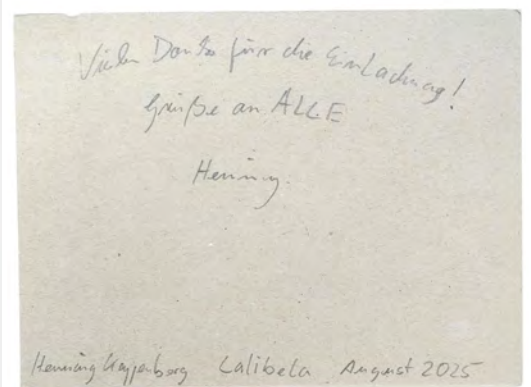 Vielen Dank für die Einladung!
Grüße an ALLE
Henning.
Henning Calibeta August 2025